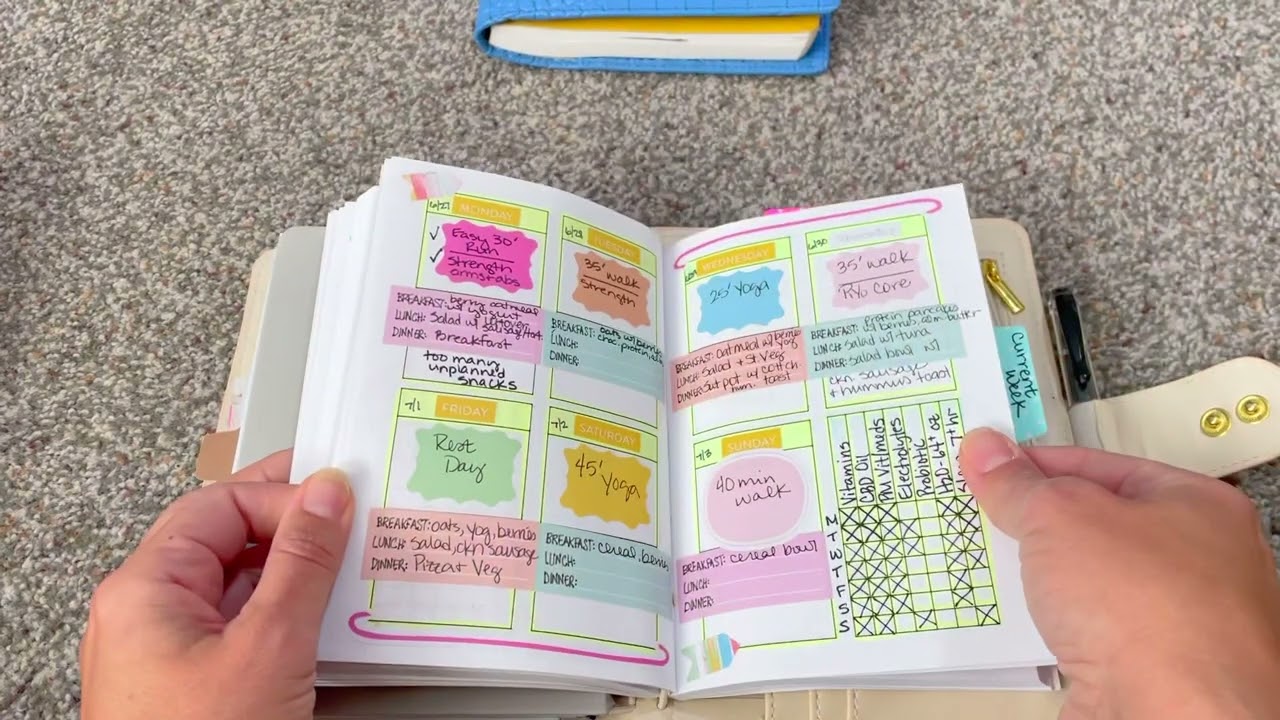 6/27 MONDAY
Easy 30'
Run
Strength
arms + abs
BREAKFAST: berry oatmeal
LUNCH: Salad w/
DINNER: Breakfast
too many
unplanned
snacks
6/28 TUESDAY
35' walk
Strength
BREAKFAST: oats w/ berries
choc. protein,
LUNCH:
DINNER:
7/1 FRIDAY
Rest
Day
BREAKFAST: oats, yog, berries
LUNCH: Salad, ckn sausage
DINNER: Pizza + Veg
7/2 SATURDAY
45' Yoga
BREAKFAST: cereal, berries
LUNCH:
DINNER:
WEDNESDAY
25' Yoga
BREAKFAST: oatmeal w/ berries
LUNCH: Salad + St. Veg
DINNER: Swt pot w/ cottch
toast
6/30
35' walk
Ryo core
BREAKFAST: protein pancakes
w/ berries, butter
LUNCH: salad w/ tuna
DINNER: salad bowl w/
ckn sausage
+ hummus toast
7/3 SUNDAY
40 min
walk
BREAKFAST: cereal bowl
LUNCH:
DINNER:
Vitamins
CBD Oil
PM Vit/meds
Electrolytes
Probiotic
H2O - 64+ oz
7+ hr
M
T
W
T
F
S
S
current
week